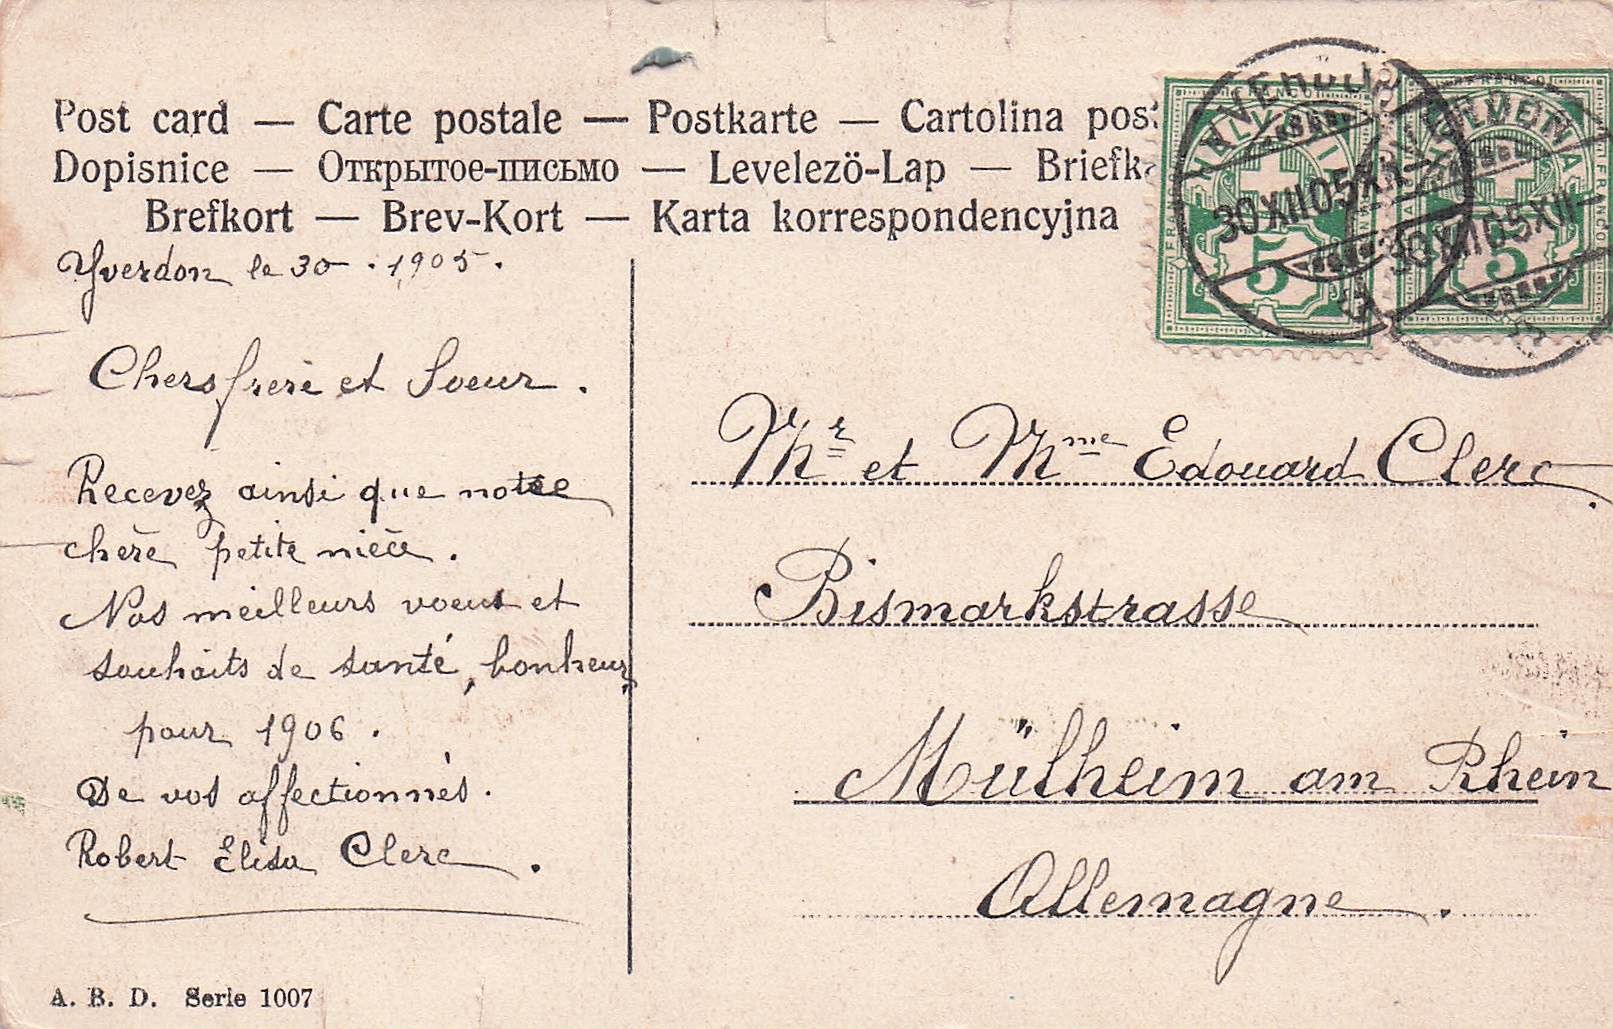 Post card — Carte postale — Postkarte — Cartolina post
Dopisnice — Открытое-письмо — Levelezö-Lap — Briefk
Brefkort — Brev-Kort — Karta korrespondencyjna
Yverdon le 30 . 1905.
Chers frere et Soeur.
Recevez ainsi que notre
chère petite nièce.
Nos meilleurs voeux et
souhaits de santé, bonheur,
pour 1906.
De vos affectionnés.
Robert Elisa Clerc.
A. B. D. Serie 1007
HELVETIA
FRANCO
5
30 XII 05 XII-
YVERDON
HELVETIA
FRANCO
5
30 XII 05 XII-
YVERDON
Mr et Mme Edouard Clerc.
Bismarkstrasse
Mülheim am Rhein
Allemagne.